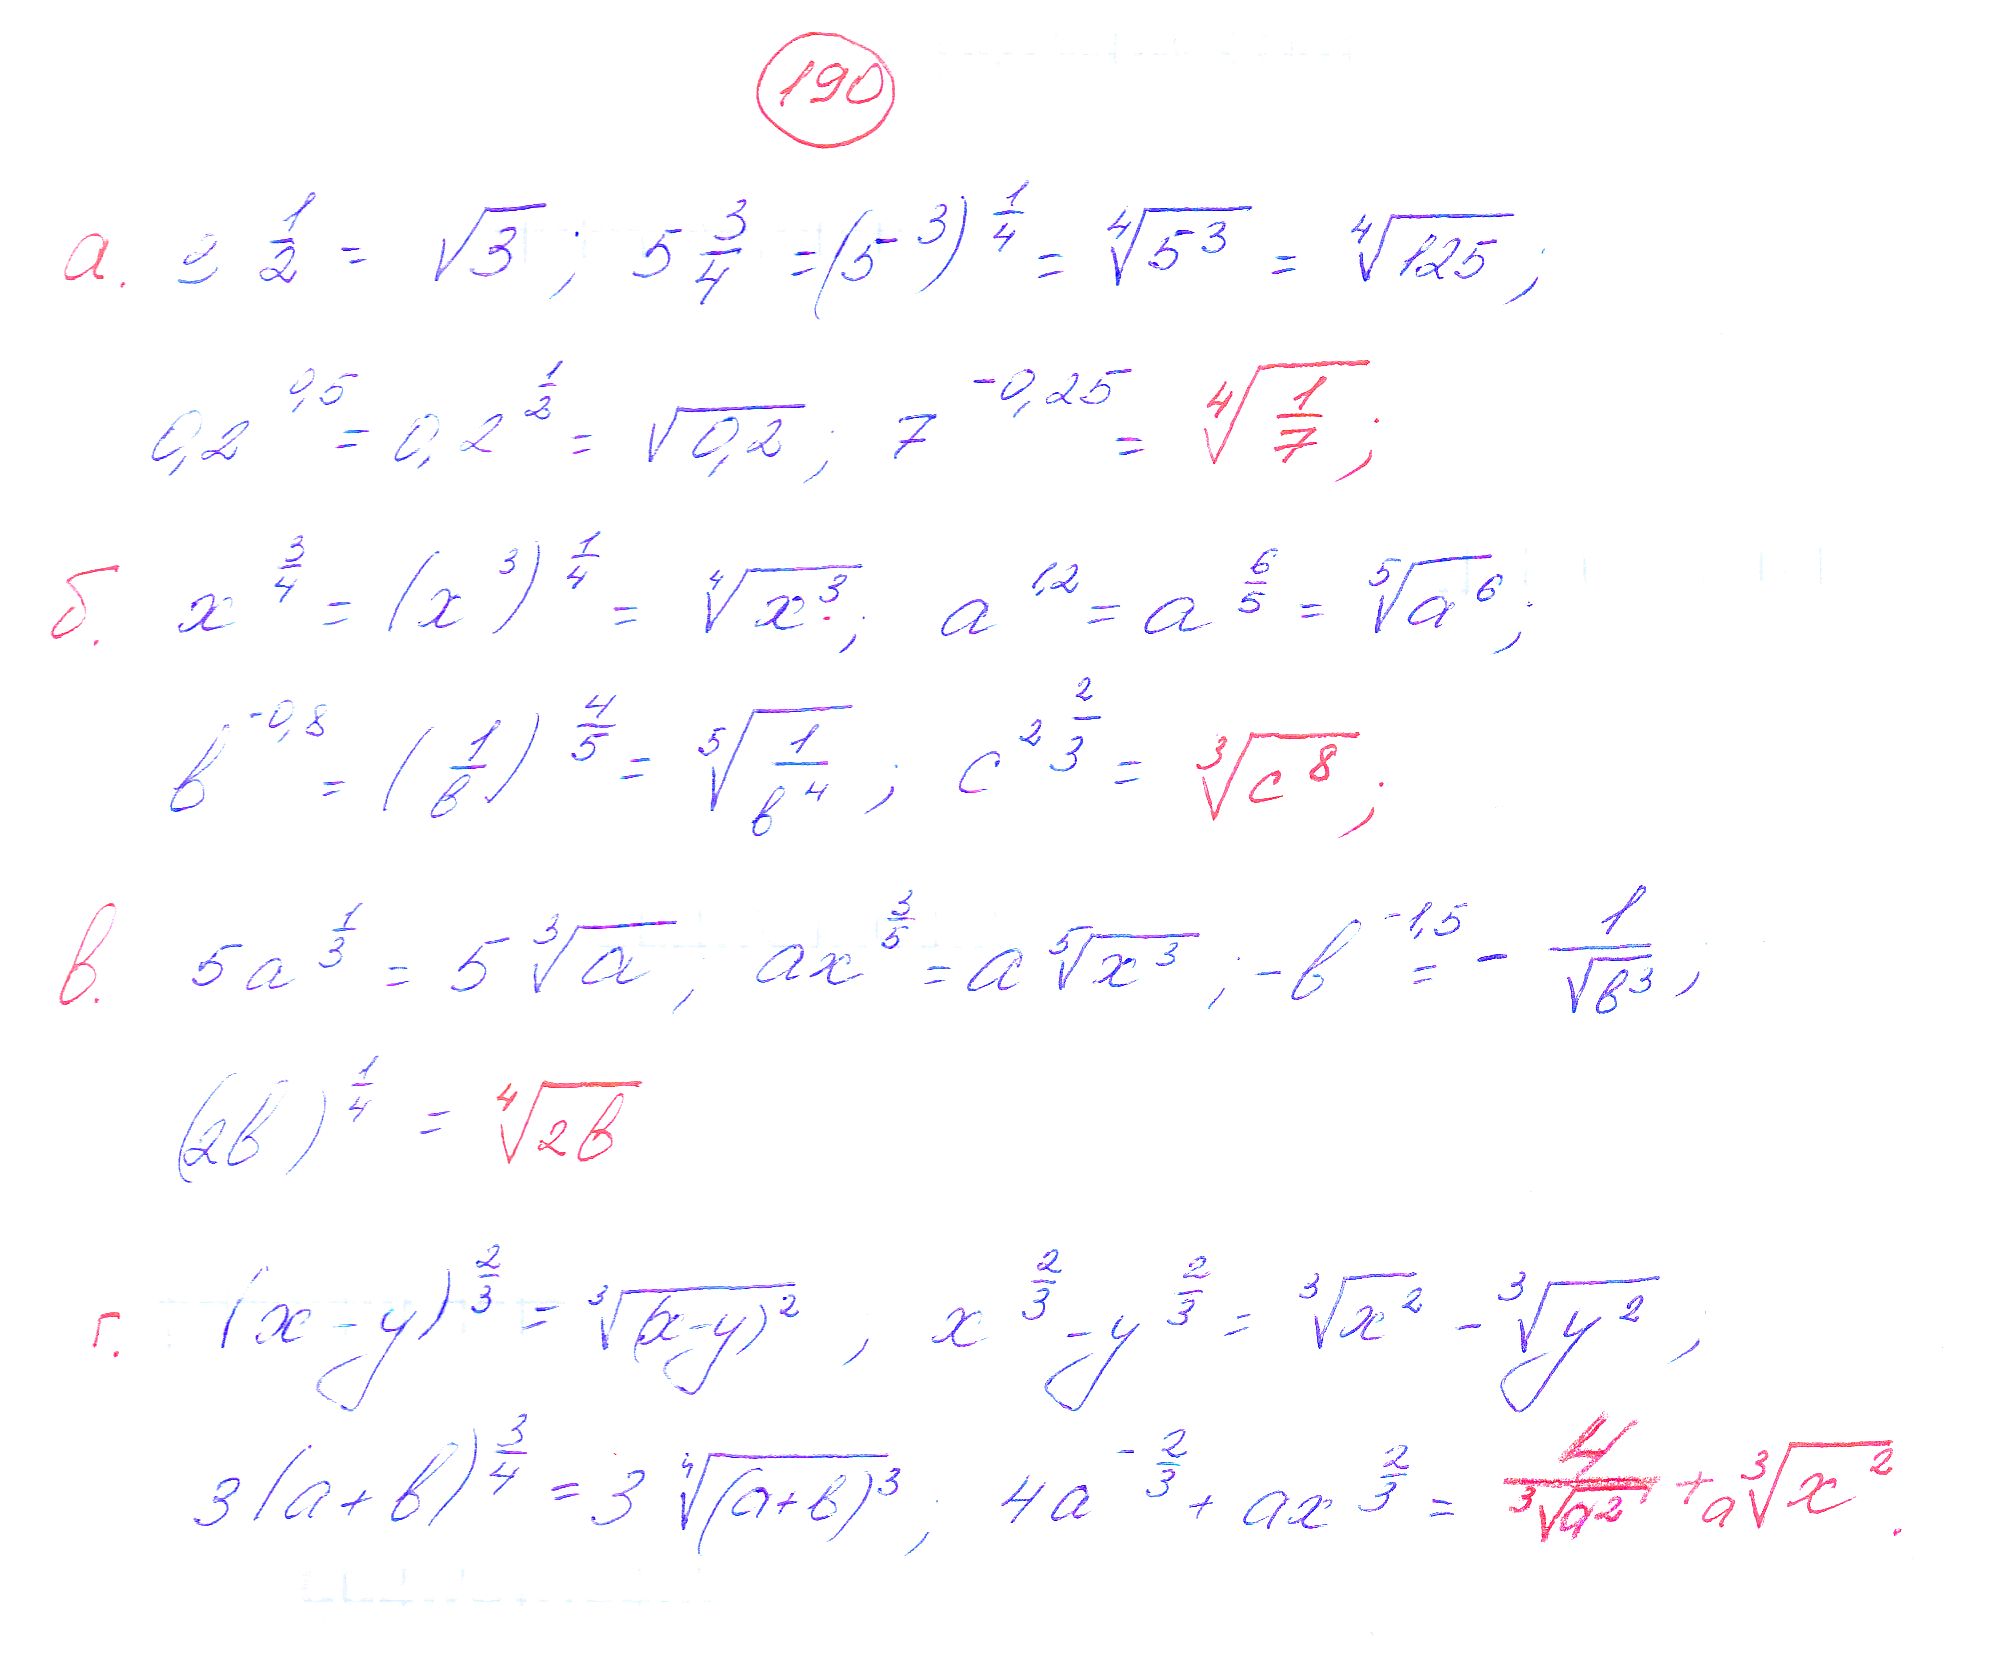 190
а. 3^(1/2) = √3; 5^(3/4) = (5^3)^(1/4) = ⁴√(5^3) = ⁴√125;
0,2^(0,5) = 0,2^(1/2) = √(0,2); 7^(-0,25) = ⁴√(1/7);
б. x^(3/4) = (x^3)^(1/4) = ⁴√(x^3); a^(1,2) = a^(6/5) = ⁵√(a^6);
в^(-0,8) = (1/в)^(4/5) = ⁵√(1/в^4); c^(2 2/3) = ³√(c^8);
в. 5a^(1/3) = 5 ³√a; ax^(3/5) = a ⁵√(x^3); -в^(-1,5) = - 1/√(в^3);
(2в)^(1/4) = ⁴√(2в)
г. (x-y)^(2/3) = ³√((x-y)^2), x^(2/3) - y^(2/3) = ³√(x^2) - ³√(y^2);
3(a+в)^(3/4) = 3 ⁴√((a+в)^3); 4a^(-2/3) + ax^(2/3) = 4/³√(a^2) + a ³√(x^2).